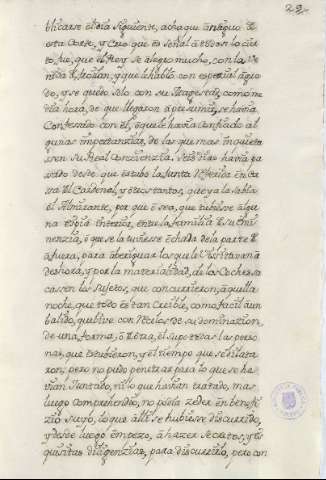 22
blicarse el dia Siguiente, achaque antiguo de
esta Corte, y creo que es Señal
to, fue, que el Rey se alegro mucho, con la Ve
nida de y que le hablò con especial agra
do, y se quedo solo con su Magestad, como me
dia hora, de que llegaron a presumir, se havia
Confesado con èl, ò que le havia Confiado al
gunas importancias, de las que mas inquieta
ssen su Real Conciencia. havia pa
sado desde que estubo la Junta referida en Ca
sa del Cardenal, y otros tantos, que ya la sabia
el Almirante, por que ò sea, que tubiese algu
na espia interior, entre la familia de su Emi
nenzia, ò que se la tuviesse echada de la parte de
afuera, para aberiguar los que le Visitavan à
deshora, y por la materialidad, de los Coches sa
cassen los Sujetos, que concurrieron aquella
noche, que todo es tan Creible, como facil à un
balido, que vive con rezelos de su dominazion,
de una forma, ò de otra, èl supo todas las perso
nas, que estubieron, y el tiempo que se dilata
ron; pero no pudo penetrar para lo que se ha
vian Juntado, ni lo que havian tratado, mas
luego comprehendio, no podia zeder en benefi
zio suyo, lo que alli se hubiesse discurrido,
y desde luego empezo, à hazer secretas, y ex
quisitas diligenzias, para discurrirlo, pero con